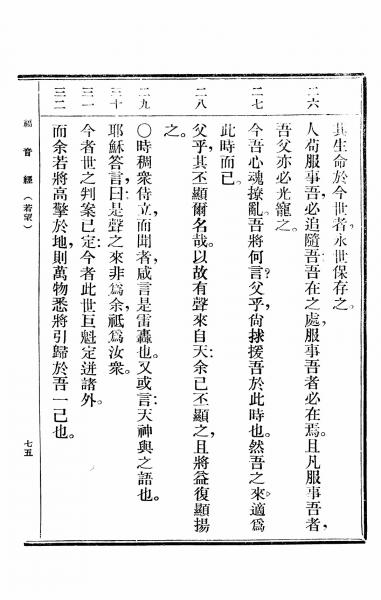 其生命於今世者，永世保存之。
二六
人苟服事吾，必追隨吾，吾在之處，服事吾者必在焉。且凡服事吾者，
吾父亦必光寵之。
二七
今吾心魂撩亂，吾將何言？父乎，尙拯援吾於此時也。然吾之來，適爲
此時而已。
二八
父乎，其丕顯爾名哉。以故有聲來自天：余已丕顯之，且將益復顯揚
之。
二九
〇時稠衆侍立而聞者，咸言是雷轟也。又或言：天神與之語也。
三十
耶穌答言曰：是聲之來，非爲余，祗爲汝衆。
三一
今者世之判案已定：今者此世巨魁定迸諸外。
三二
而余若將高擎於地，則萬物悉將引歸於吾一己也。
福音經（若望）
七五